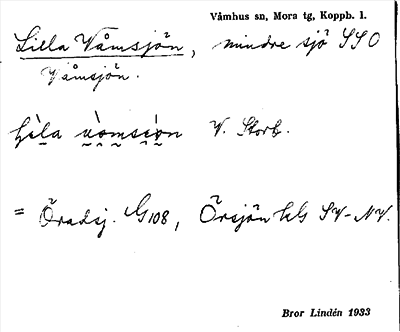 Våmhus sn, Mora tg, Koppb. l.
Lilla Våmsjön, mindre sjö SSO
Våmsjön.
V. Storb.
= Öradsj. G108, Örsjön hlG SV-NV.
Bror Lindén 1933